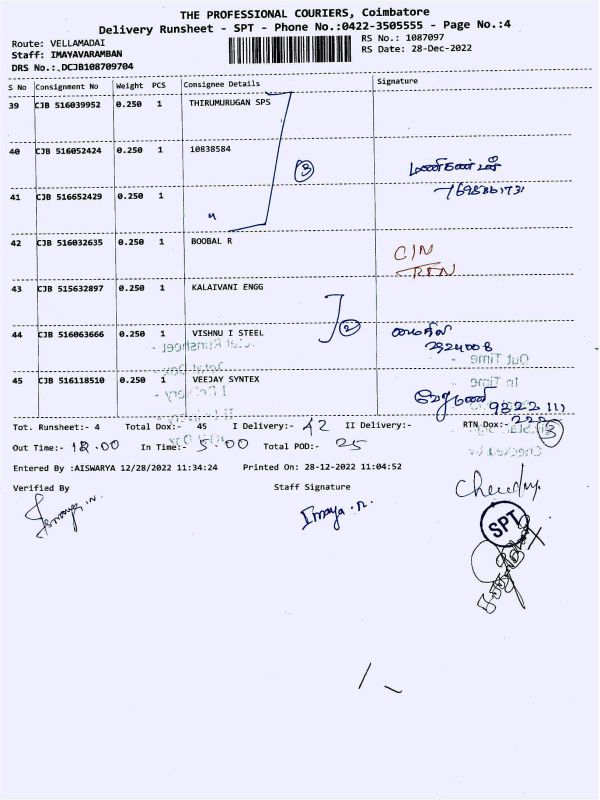 THE PROFESSIONAL COURIERS, Coimbatore
Delivery Runsheet - SPT - Phone No.:0422-3505555 - Page No.:4
Route: VELLAMADAI
RS No.: 1087097
Staff: IMAYAVARAMBAN
RS Date: 28-Dec-2022
DRS No.:.DCJB108709704
S No Consignment No Weight PCS Consignee Details Signature
39 CJB 516039952 0.250 1 THIRUMURUGAN SPS
40 CJB 516052424 0.250 1 10838584
3
மணிகண்டன்
41 CJB 516652429 0.250 1
"
42 CJB 516032635 0.250 1 BOOBAL R
C/N
RTN
43 CJB 515632897 0.250 1 KALAIVANI ENGG
2
44 CJB 516063666 0.250 1 VISHNU I STEEL
2924008
45 CJB 516118510 0.250 1 VEEJAY SYNTEX
9822 111
222
Tot. Runsheet:- 4 Total Dox:- 45 I Delivery:- 42 II Delivery:- RTN Dox:- 3
Out Time:- 12.00 In Time:- 5.00 Total POD:- 25
Entered By :AISWARYA 12/28/2022 11:34:24 Printed On: 28-12-2022 11:04:52
Verified By Staff Signature
Imaya.n.
SPT